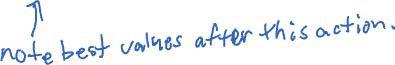 note best values after this action.